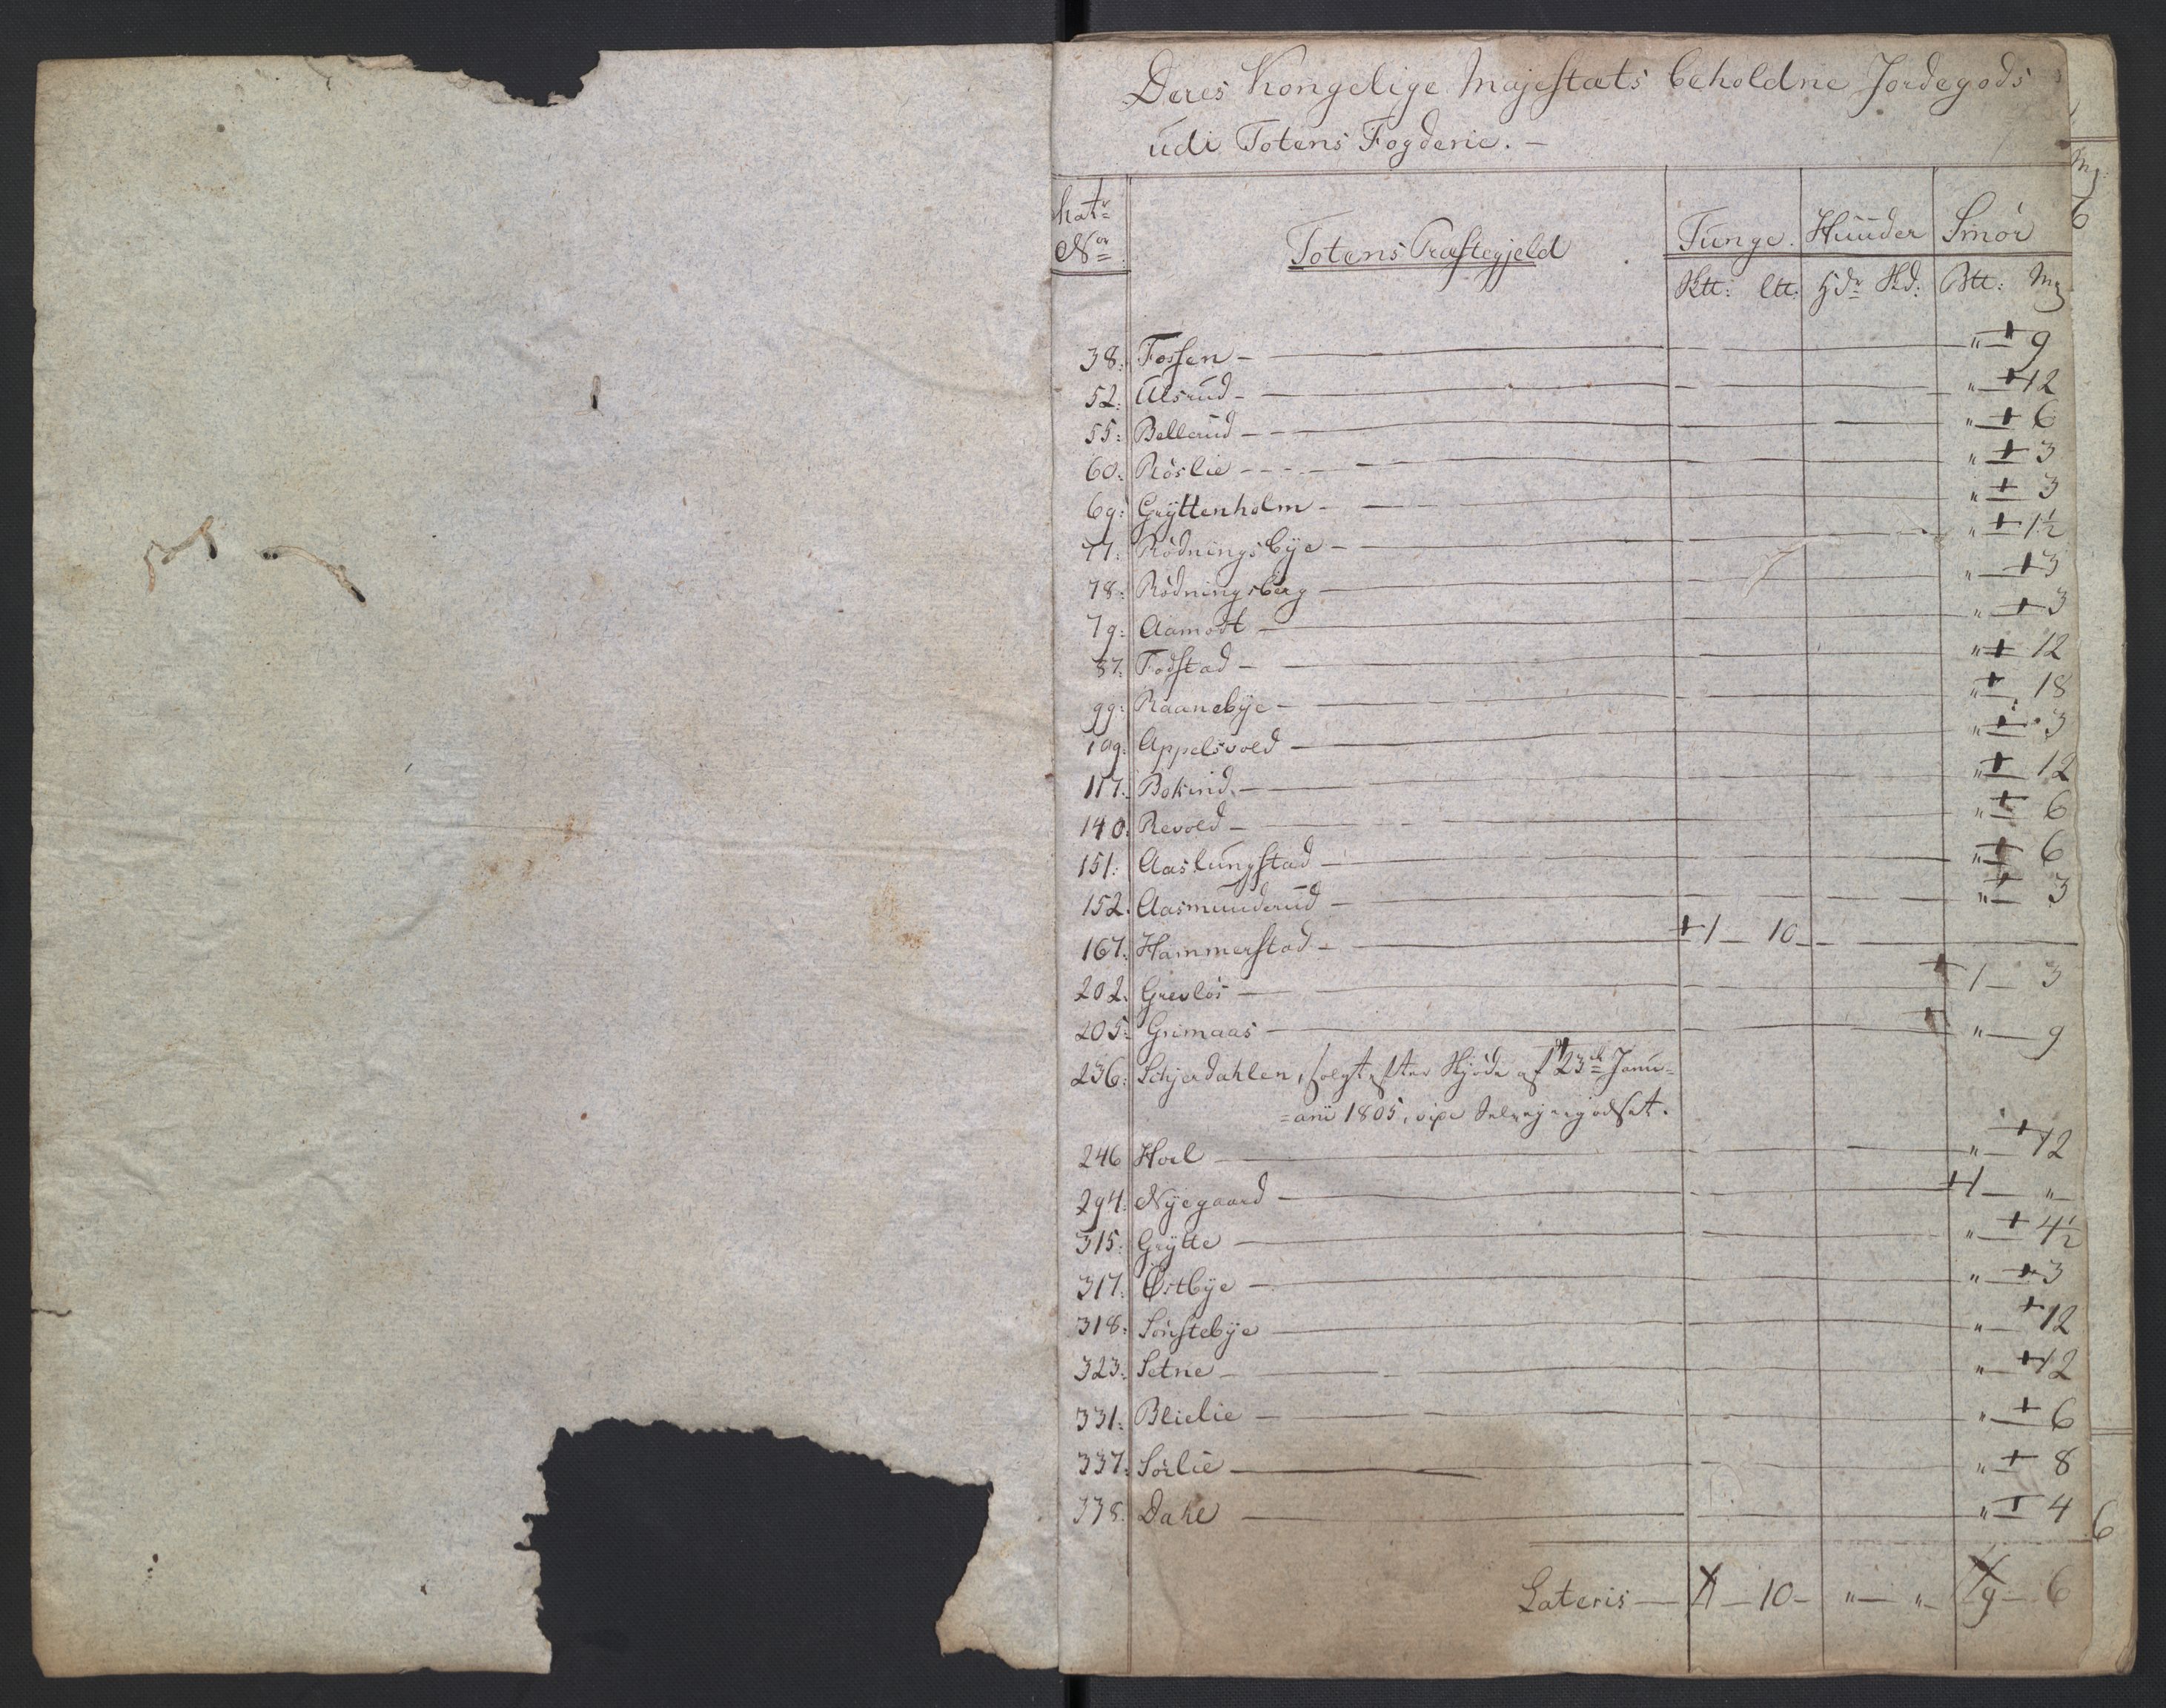 Deres Kongelige Majestæts beholdne Jordegods
udi Totens Fogderie. —
Matr No Totens Præstegjeld Tunge. Huuder Smör
Btt: Mg
38: Fossen — " + 9
52: Alsrud — " + 12
55: Bellerud — " + 6
60: Röslie — " + 3
69: Gryttenholm — " + 3
77: Rödningsbye — " + 1½
78: Rödningsberg — " + 3
79: Aamodt — " + 3
87: Fodstad — " + 12
99: Raanebye — " + 18
109: Appelsvold — " + 3
117: Bokind — " + 12
140: Revold — " + 6
151: Aaslungstad — " + 6
152: Aasmunderud — " + 3
167: Hammerstad — + 1 — 10 —
202: Grevlös — + 1 — 3
205: Grimaas — " — 9
236: Schjerdahlen, solgt efter Skjöde af 23de Janu=
=arii 1805, vise Selveyergodset.
246 Hoel — " + 12
294: Nyegaard — + 1 — "
315: Grytte — " + 4½
317: Östbye — " + 3
318: Sönstebye — " + 12
323: Setne — " + 12
331: Blielie — " + 6
337: Sörlie — " + 8
338: Dahl — " + 4
Lateris — 1 — 10 — " — " — 9 — 6